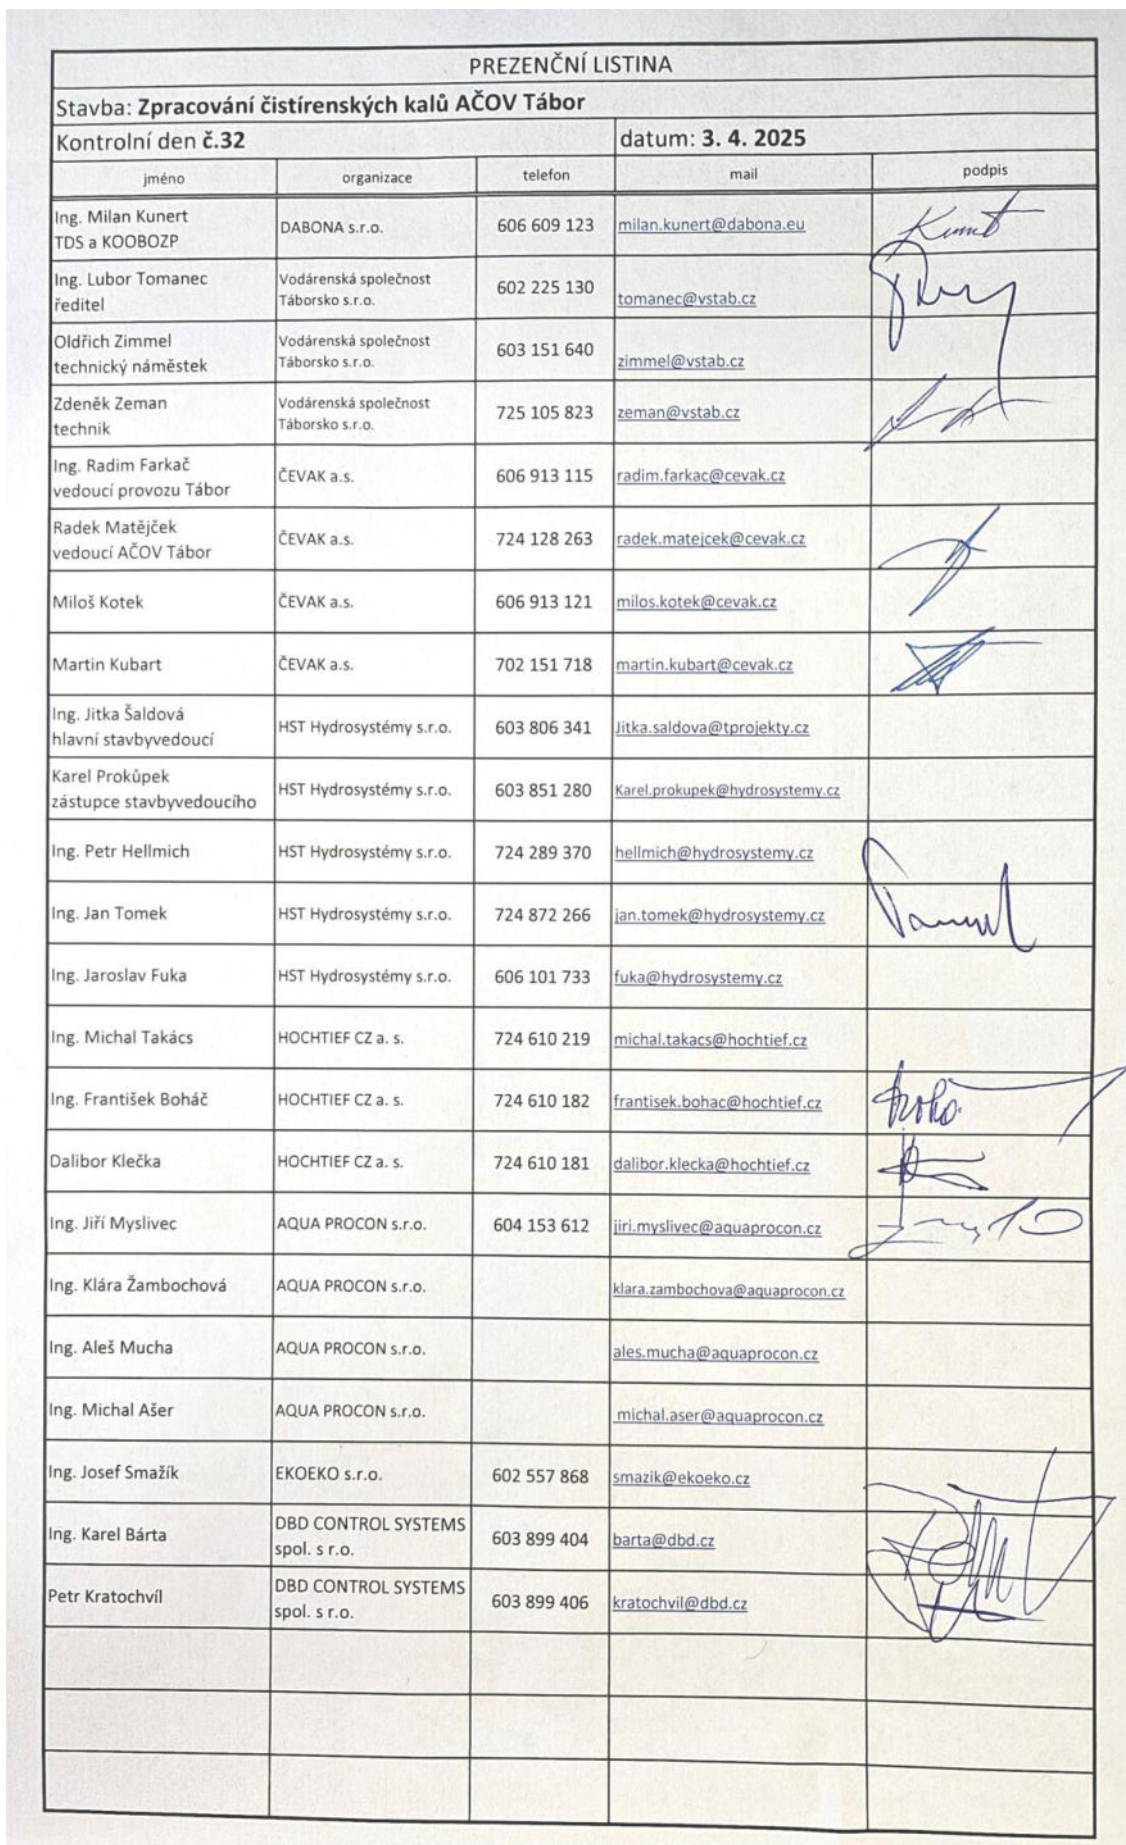 PREZENČNÍ LISTINA
Stavba: Zpracování čistírenských kalů AČOV Tábor
Kontrolní den č.32 datum: 3. 4. 2025
jméno organizace telefon mail podpis
Ing. Milan Kunert
TDS a KOOBOZP DABONA s.r.o. 606 609 123 milan.kunert@dabona.eu Kunert
Ing. Lubor Tomanec
ředitel
Vodárenská společnost
Táborsko s.r.o.
602 225 130 tomanec@vstab.cz
Oldřich Zimmel
technický náměstek
Vodárenská společnost
Táborsko s.r.o.
603 151 640 zimmel@vstab.cz
Zdeněk Zeman
technik
Vodárenská společnost
Táborsko s.r.o.
725 105 823 zeman@vstab.cz
Ing. Radim Farkač
vedoucí provozu Tábor
ČEVAK a.s. 606 913 115 radim.farkac@cevak.cz
Radek Matějček
vedoucí AČOV Tábor
ČEVAK a.s. 724 128 263 radek.matejcek@cevak.cz
Miloš Kotek ČEVAK a.s. 606 913 121 milos.kotek@cevak.cz
Martin Kubart ČEVAK a.s. 702 151 718 martin.kubart@cevak.cz
Ing. Jitka Šaldová
hlavní stavbyvedoucí
HST Hydrosystémy s.r.o. 603 806 341 Jitka.saldova@tprojekty.cz
Karel Prokůpek
zástupce stavbyvedoucího
HST Hydrosystémy s.r.o. 603 851 280 Karel.prokupek@hydrosystemy.cz
Ing. Petr Hellmich HST Hydrosystémy s.r.o. 724 289 370 hellmich@hydrosystemy.cz
Ing. Jan Tomek HST Hydrosystémy s.r.o. 724 872 266 jan.tomek@hydrosystemy.cz
Ing. Jaroslav Fuka HST Hydrosystémy s.r.o. 606 101 733 fuka@hydrosystemy.cz
Ing. Michal Takács HOCHTIEF CZ a. s. 724 610 219 michal.takacs@hochtief.cz
Ing. František Boháč HOCHTIEF CZ a. s. 724 610 182 frantisek.bohac@hochtief.cz
Dalibor Klečka HOCHTIEF CZ a. s. 724 610 181 dalibor.klecka@hochtief.cz
Ing. Jiří Myslivec AQUA PROCON s.r.o. 604 153 612 jiri.myslivec@aquaprocon.cz
Ing. Klára Žambochová AQUA PROCON s.r.o. klara.zambochova@aquaprocon.cz
Ing. Aleš Mucha AQUA PROCON s.r.o. ales.mucha@aquaprocon.cz
Ing. Michal Ašer AQUA PROCON s.r.o. michal.aser@aquaprocon.cz
Ing. Josef Smažík EKOEKO s.r.o. 602 557 868 smazik@ekoeko.cz
Ing. Karel Bárta
DBD CONTROL SYSTEMS
spol. s r.o.
603 899 404 barta@dbd.cz
Petr Kratochvíl
DBD CONTROL SYSTEMS
spol. s r.o.
603 899 406 kratochvil@dbd.cz